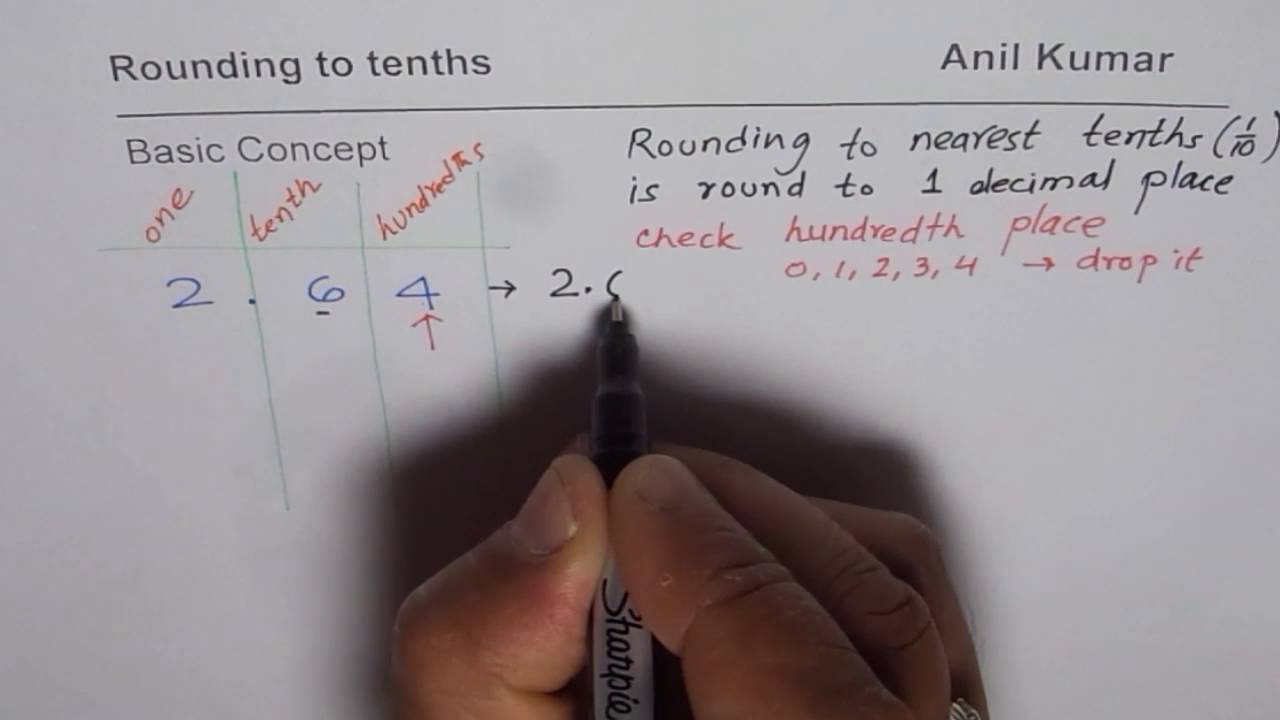 Rounding to tenths
Anil Kumar
Basic Concept
one tenth hundredths
2 . 6 4 → 2.
Rounding to nearest tenths (1/10)
is round to 1 decimal place
check hundredth place
0, 1, 2, 3, 4 → drop it
Sharpie